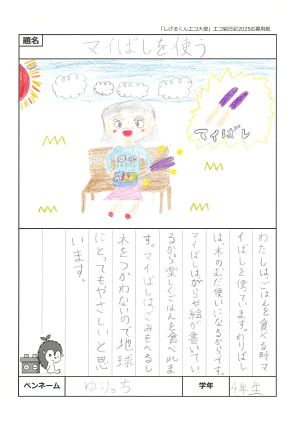 「しげるくんエコ大使」エコ絵日記2025応募用紙
題名
マイばしを使う
マイばし
わたしは、ごはんを食べる時マ
イばしを使っています。わりばし
は、木のむだ使いになるからです。
マイばしはがらや絵が書いてい
るから楽しくごはんを食べれま
す。マイばしは、ごみもへるし
木をつかわないので地球
にとってもやさしいと思
います。
ペンネーム
ゆりっち
学年
4年生